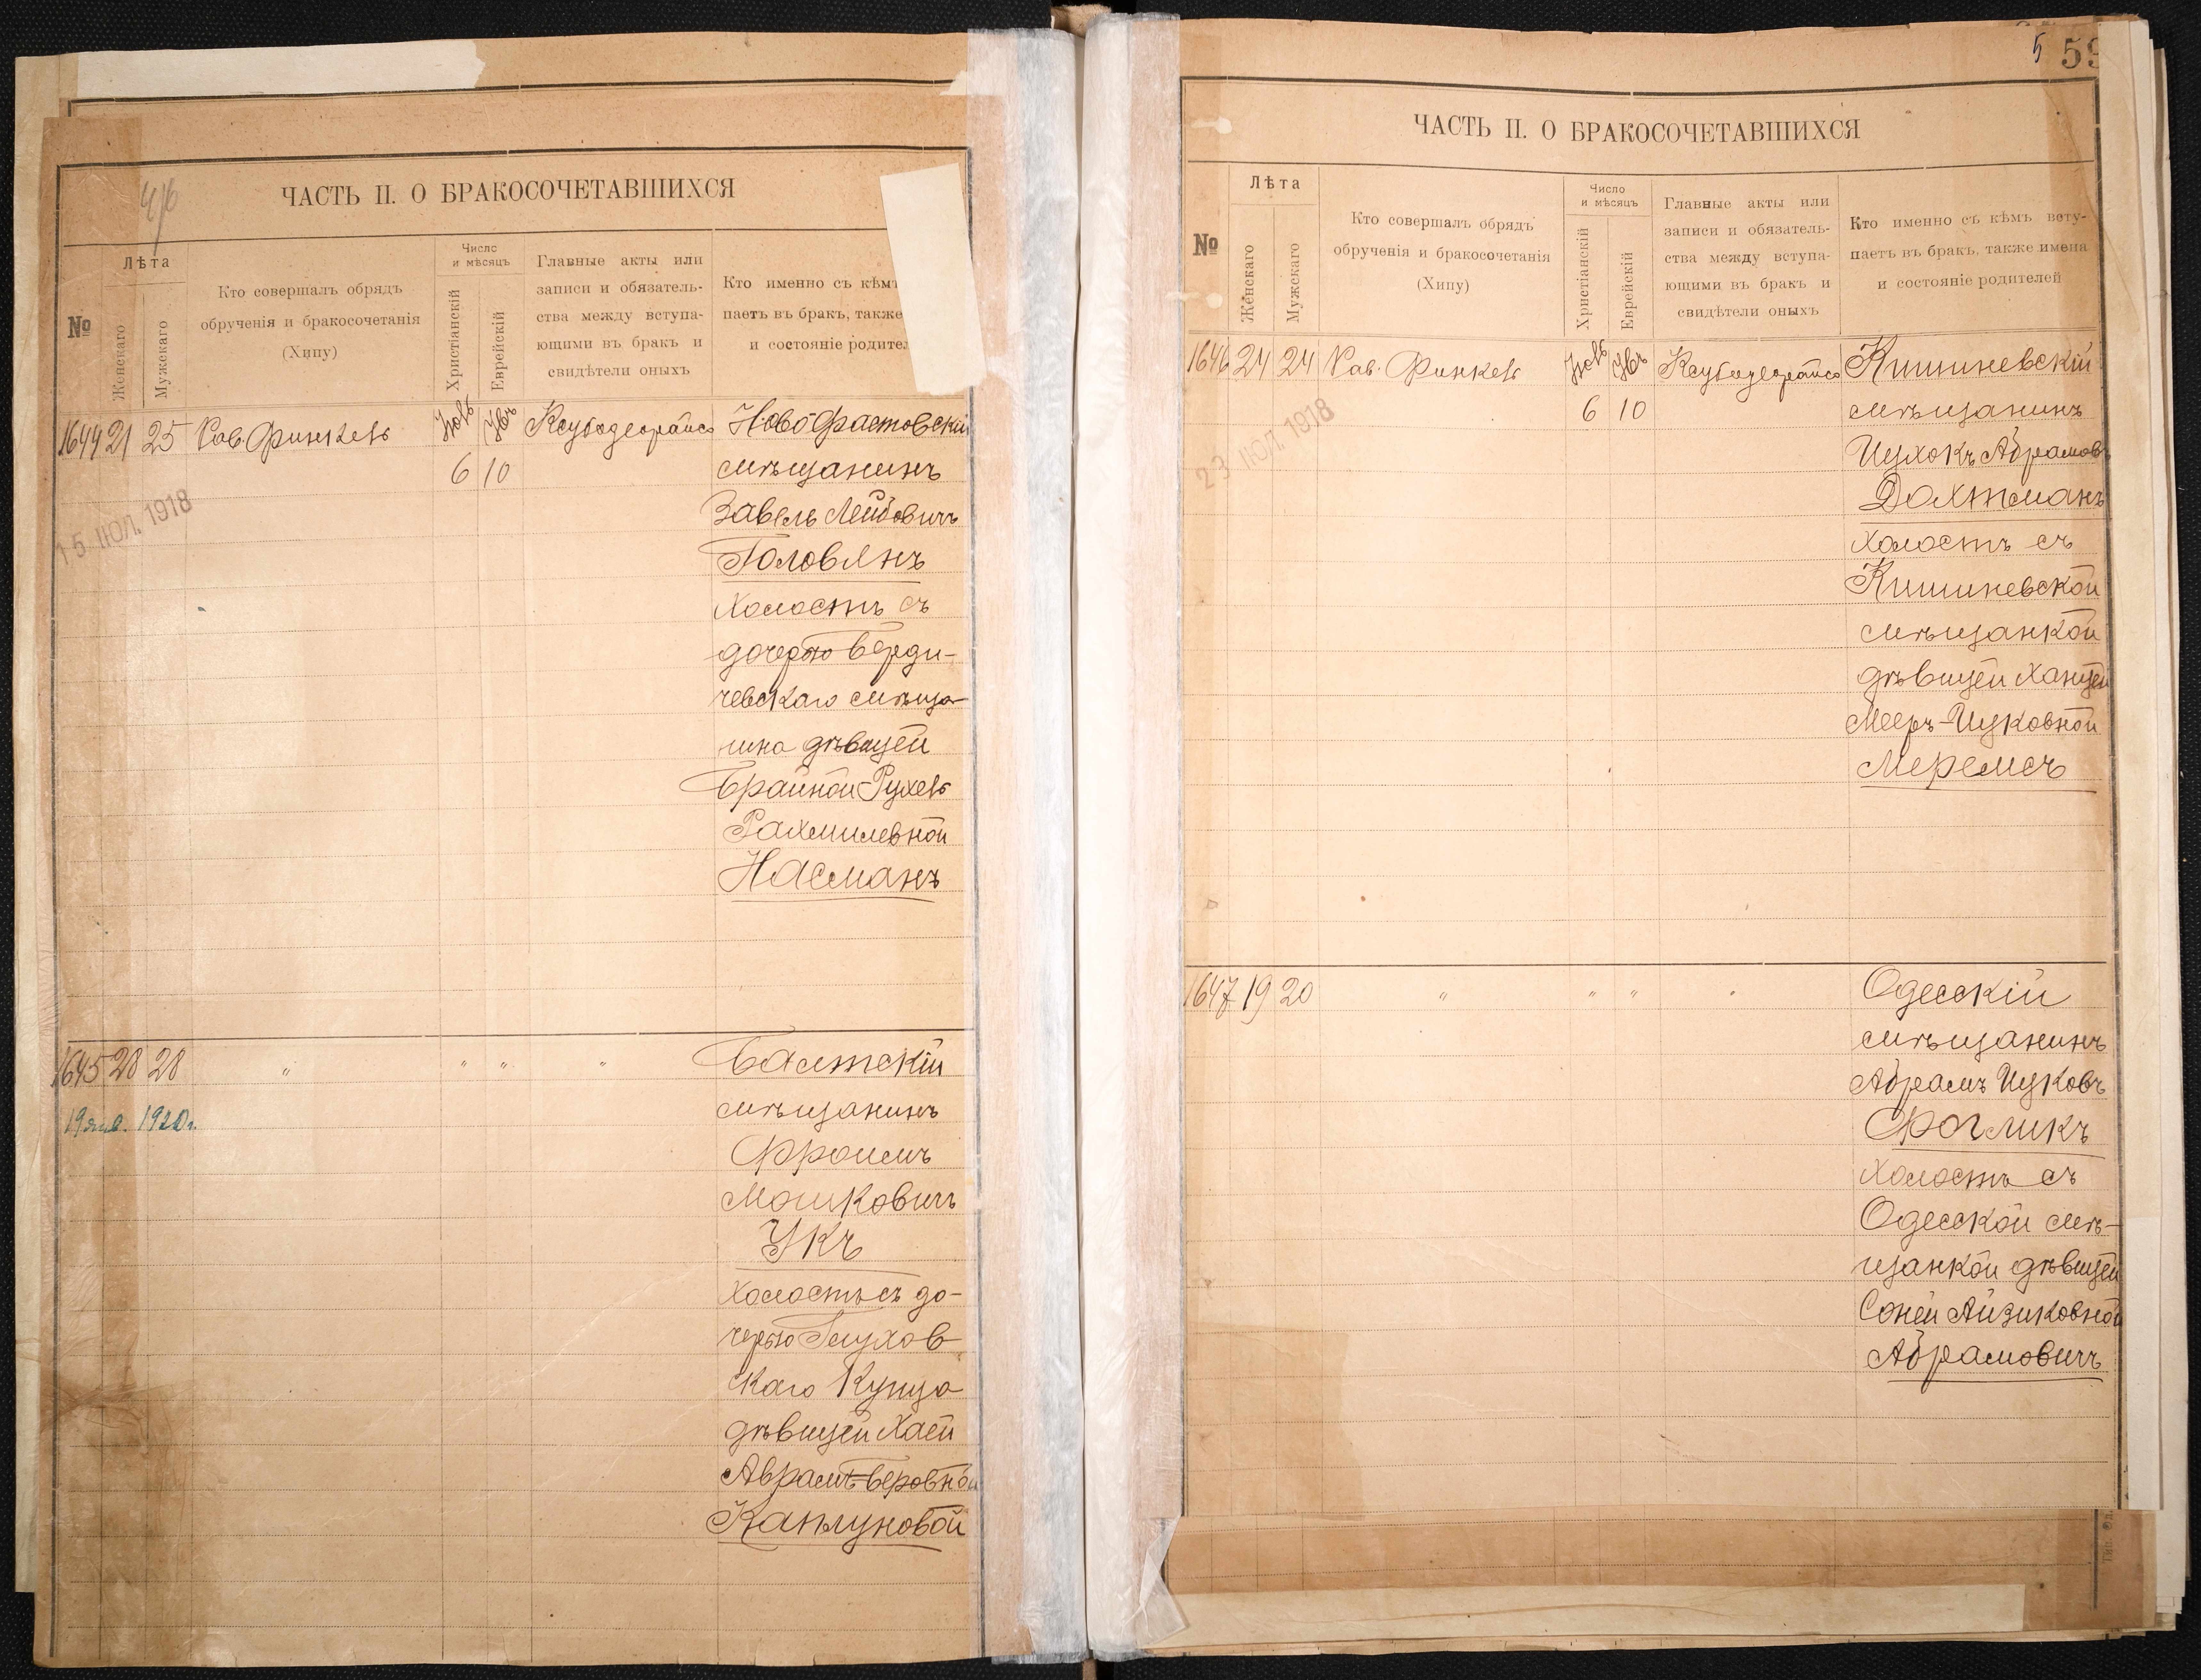 4/6
ЧАСТЬ II. О БРАКОСОЧЕТАВШИХСЯ
№
Лѣта
Женскаго
Мужскаго
Кто совершалъ обрядъ
обрученія и бракосочетанія
(Хипу)
Число
и мѣсяцъ
Христіанскій
Еврейскій
Главные акты или
записи и обязатель-
ства между вступа-
ющими въ бракъ и
свидѣтели оныхъ
Кто именно съ кѣм
паетъ въ бракъ, также
и состояніе родител
1644 21 25 Рав. Финкель
6 10
15 ІЮЛ. 1918
Новофастовскій
мѣщанинъ
Завель Лейбовичъ
Головянъ
холостъ съ
дочерью Берди-
чевскаго мѣща-
нина дѣвицей
Брайной-Рухель
Рахмилевной
Насманъ
1645 28 28 " " " "
19 янв. 1920г.
Балтскій
мѣщанинъ
Фроимъ
Мошковичъ
Укъ
холостъ съ до-
черью Глухов
скаго Купца
дѣвицей Хаей
Аврамъ-Беровной
Каплуновой
5 59
ЧАСТЬ II. О БРАКОСОЧЕТАВШИХСЯ
№
Лѣта
Женскаго
Мужскаго
Кто совершалъ обрядъ
обрученія и бракосочетанія
(Хипу)
Число
и мѣсяцъ
Христіанскій
Еврейскій
Главные акты или
записи и обязатель-
ства между вступа-
ющими въ бракъ и
свидѣтели оныхъ
Кто именно съ кѣмъ всту-
паетъ въ бракъ, также имена
и состояніе родителей
1646 24 24 Рав. Финкель
6 10
23 ІЮЛ. 1918
Кишиневскій
мѣщанинъ
Ицхокъ Абрамов
Дохтманъ
холостъ съ
Кишиневской
мѣщанкой
дѣвицей Ханцей
Мееръ-Ицковной
Меремсъ
1647 19 20 " " " "
Одесскій
мѣщанинъ
Абрамъ Ицковъ
Фогликъ
холостъ съ
Одесской мѣ-
щанкой дѣвицей
Соней Айзиковной
Абрамовичъ